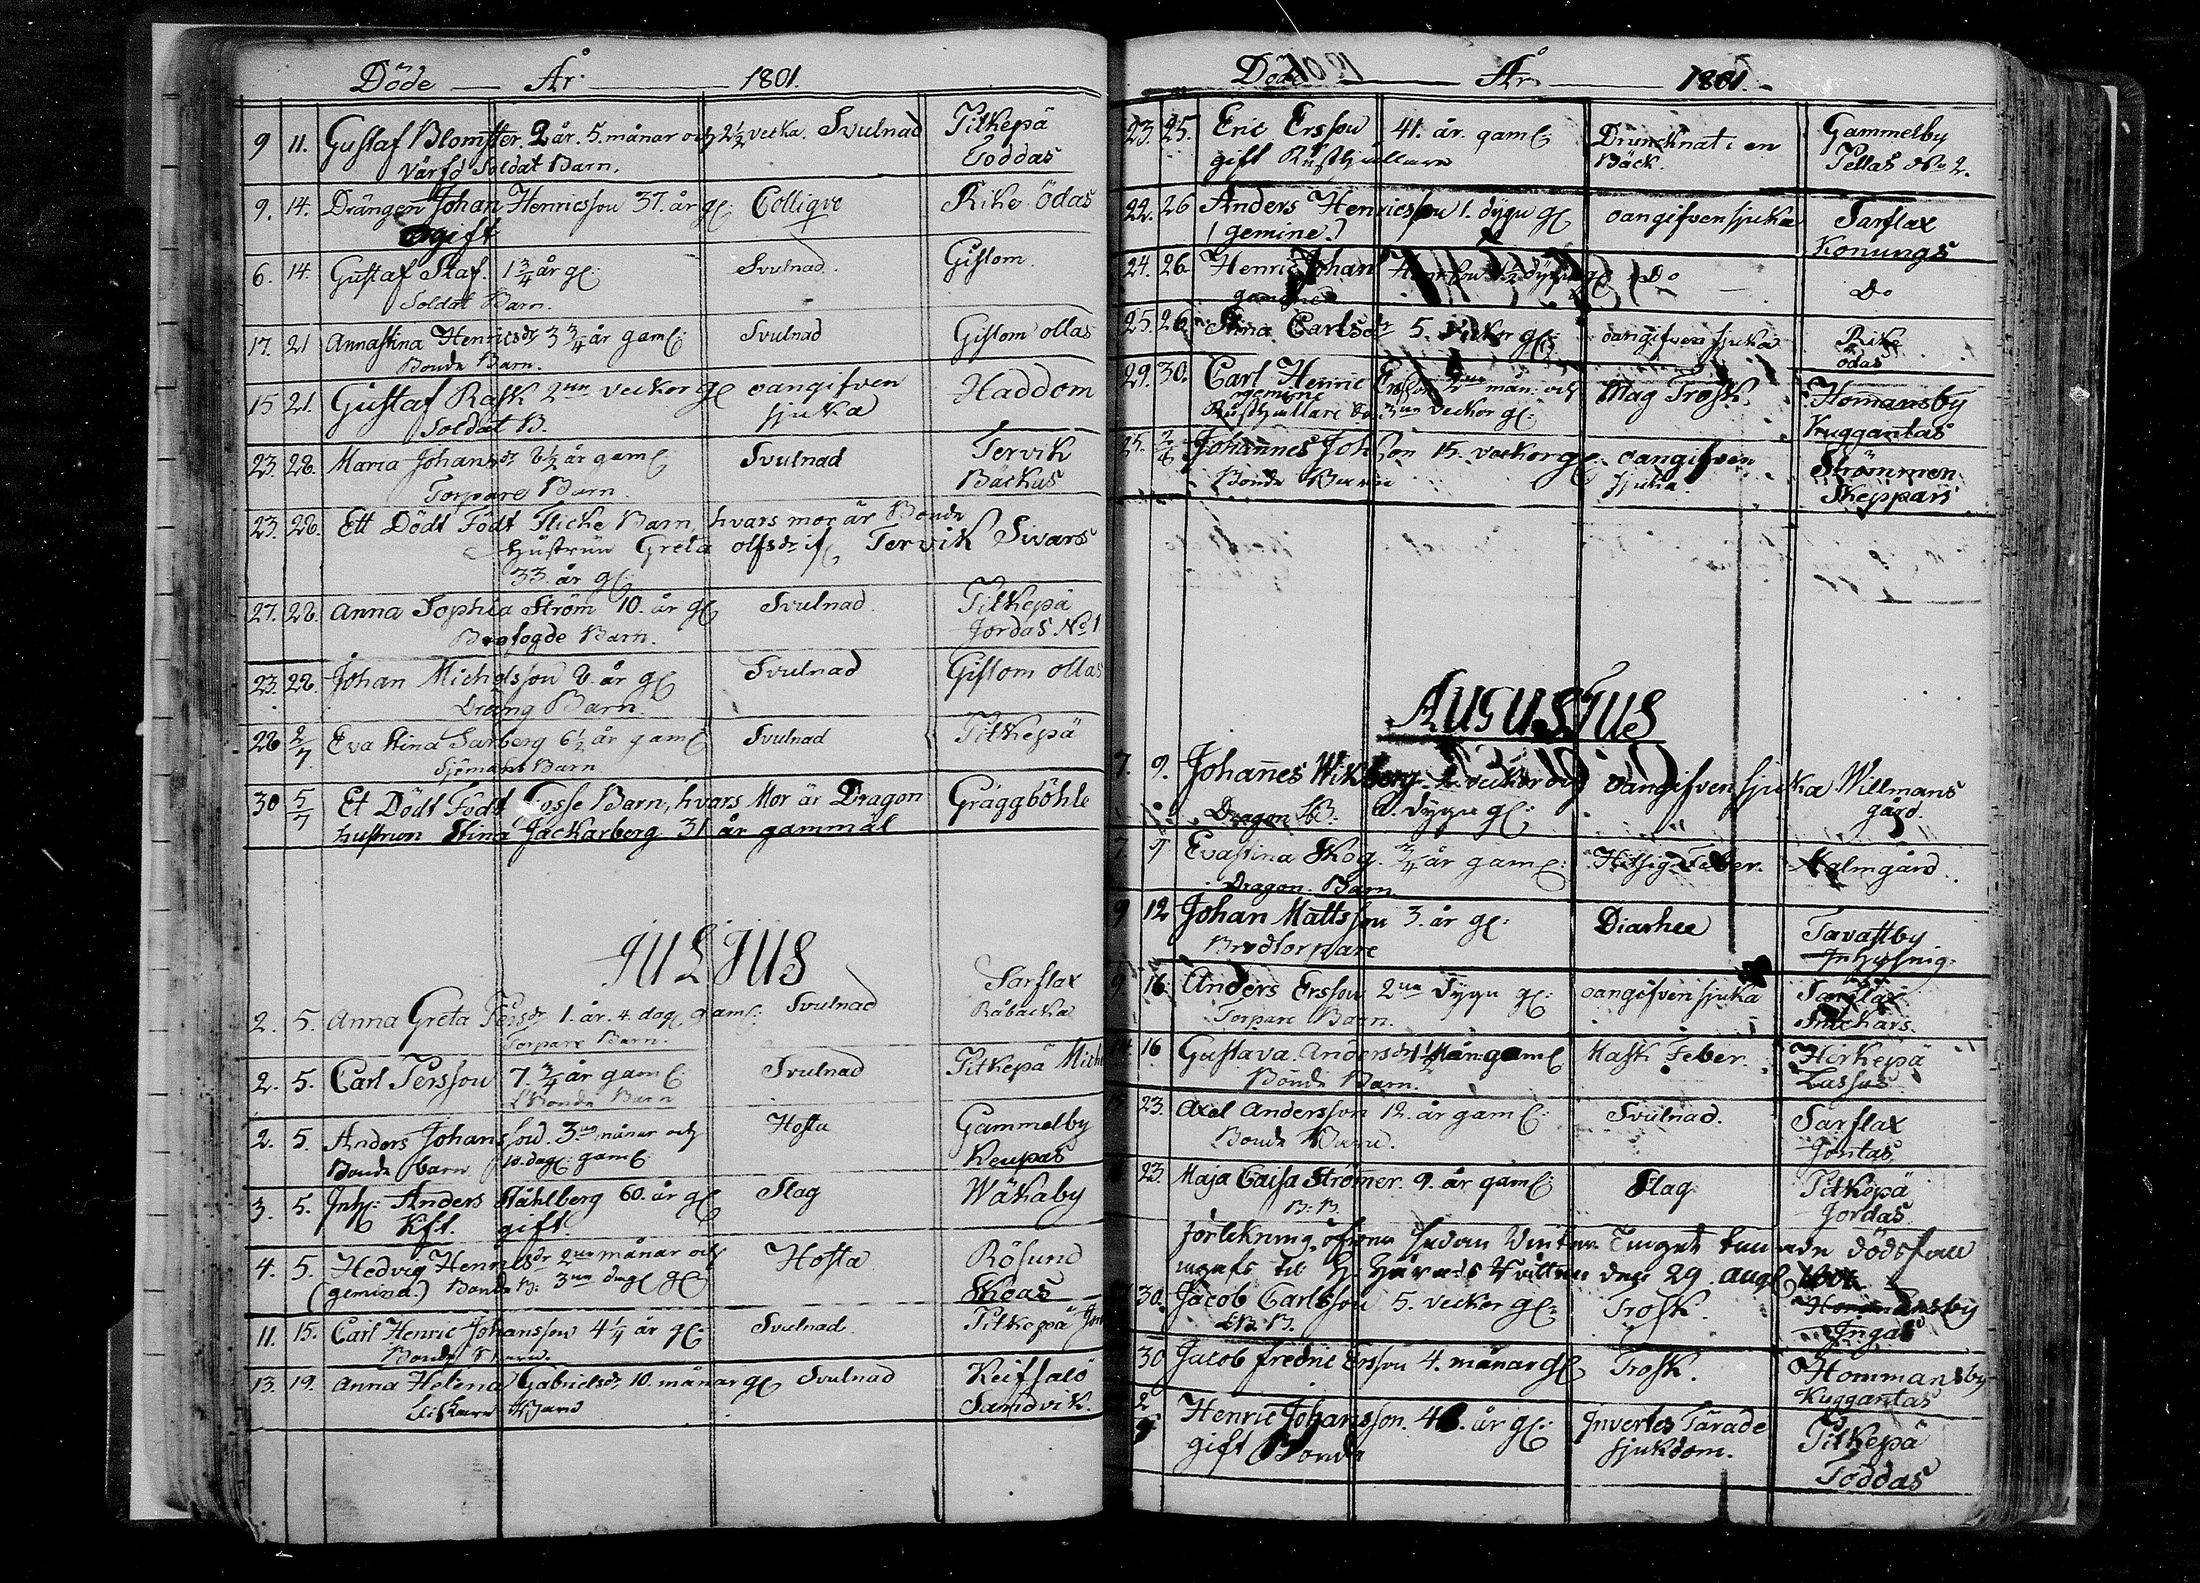 Döde År 1801.
9 11. Gustaf Blomster. 2 år. 5. månar och 2 1/2 vecka. Svulnad Pitkepä
Värfd Soldat Barn. Toddas
9. 14. Drängen Johan Henricsson 37. år gl: Collique Rike Ödas
ogift
6. 14. Gustaf Staf. 1 3/4 år gl: Svulnad. Gislom.
Soldat Barn.
17. 21 Annastina Henricsdr 3 3/4 år gaml: Svulnad Gislom ollas
Bonde Barn.
15 21. Gustaf Rask 2ne veckor gl oangifven Haddom
Soldat B. sjuka
23. 28. Maria Johansdr 6 1/2 år gaml: Svulnad Tervik
Torpare Barn Bäckus
23. 28. Ett Dödt Födt Flicke Barn, hvars mor är Bonde
Hustrun Greta olfsdr if Tervik Sivars
33. år gl:
27. 28. Anna Sophia Ström 10. år gl Svulnad. Pitkepä
Brofogde Barn. Jordas No 1
23. 28. Johan Michelsson 6. år gl Svulnad Gislom ollas
Dräng Barn.
28 2/7. Eva Stina Sarberg 6 1/2 år gaml Svulnad Pitkepä
Sjömans Barn
30 5/7 Et Dödt Födt Gosse Barn, hvars Mor är Dragon Gräggböhle
hustrun Stina Jackarberg 31 år gammal
JULIUS
Sarflax
2. 5. Anna Greta Persdr 1. år. 4. dag gaml: Svulnad Råbacka
Torpare Barn.
2. 5. Carl Persson 7. 3/4 år gaml: Svulnad Pitkepä Mich
Bonde Barn
2. 5. Anders Johansson. 3ne månar och Hosta Gammelby
Bonde barn 10. dag: gaml: Keupas
3. 5. Inh: Anders Ståhlberg 60. år gl Slag Wäkaby
Kft. gift.
4. 5. Hedvig Henricsdr 2ne månar och Hosta Rösund
(gemina.) Bonde B: 3ne dag gl Skeas
11. 15. Carl Henric Johansson 4 1/4 år gl: Svulnad. Pitkepä
Bonde Barn.
13. 19. Anna Helena Gabrielsdr. 10. månar gl Svulnad Keitsalö
Fiskare Barn Sandvik.
Döde År 1801.
23. 25. Eric Ersson 41. år. gaml: Drunknat i en Gammelby
gift Rusthållare Bäck. Pellas No 2.
22. 26 Anders Henricsson 1. dygn gl oangifven sjuka Sarflax
(gemine.) Konungs
24. 26. Henric Johan Do Do
25. 26. Stina Carlsdr 5. veckor gl: oangifven sjuka Rike
ödas
29. 30. Carl Henric Ersson 2ne mån: och Mag Trosk. Homansby
Rusthållare 3ne veckor gl: Kuggantas
25. 2/8 Johannes Johsson 15. veckor gl: oangifven Strömmen
Bonde Barn sjuka. Skeppars
AUGUSTUS
7. 9. Johannes Wikberg veckor och oangifven sjuka Willmans
Dragon B. dygn gl: gård.
7 9 Evastina Skog. 3/4 år gaml: Hitsig Feber. Malmgård.
Dragon Barn
9 12 Johan Mattsson 3. år gl: Diarhee Tavastby
Brodtorpare
9 16. Anders Ersson 2ne dygn gl: oangifven sjuka Sarflax
Torpare Barn. Snickars.
16 Gustava Andersdr 1 1/2 Mån: gaml Mask Feber. Hirkepä
Bonde Barn. Lassas
23. Axel Andersson 12. år gaml: Svulnad. Sarflax
Bonde Barn. Jontas
23. Maja Caisa Strömer 9. år gaml: Slag Pitkepä
B: B. Jordas
förtekning öfver sedan Vinter Tinget dödsfall
30. Jacob Carlsson 5. veckor gl: Trosk. Hommansby
B. B. Ingas
30 Jacob fredric Ersson 4. månar gl Trosk. Hommansby
Kuggantas
2/9 Henric Johansson. år gl: Invertes Tärade Pitkepä
gift Bonde sjukdom. Toddas